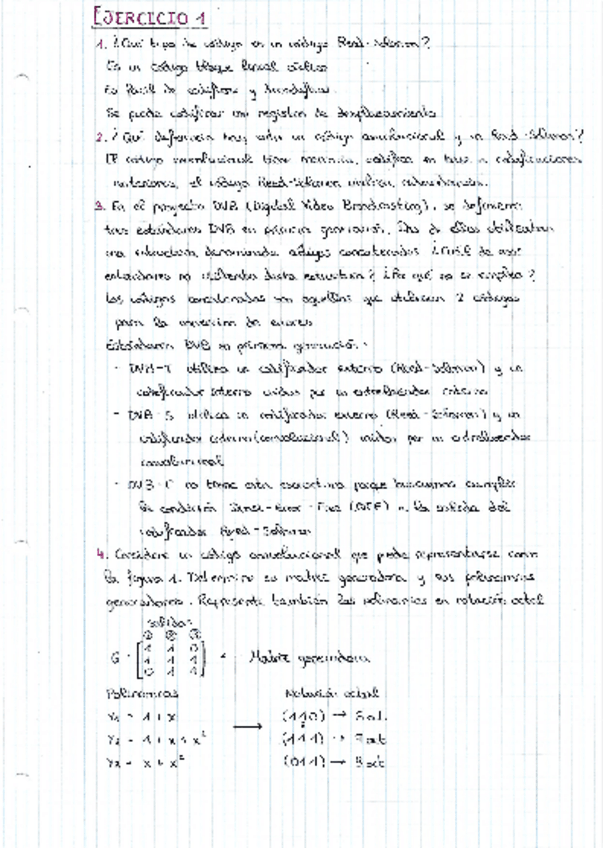 EJERCICIO 1
1. ¿Qué tipo de código es un código Reed-Solomon?
Es un código bloque lineal cíclico
Es fácil de codificar y decodificar
Se puede codificar con registros de desplazamiento
2. ¿Qué diferencia hay entre un código convolucional y un Reed-Solomon?
El código convolucional tiene memoria, codifica en base a codificaciones
anteriores, el código Reed-Solomon
3. En el proyecto DVB (Digital Video Broadcasting), se definieron
tres estándares DVB en primera generación. Dos de ellos utilizaban
una estructura denominada códigos concatenados ¿Cuál de esos
estándares no dicha estructura? ¿Por qué no se emplea?
Los códigos concatenados son aquellos que utilizan 2 códigos
para la corrección de errores
Estándares DVB en primera generación:
- DVB-T utiliza un codificador externo (Reed-Solomon) y un
codificador interno unidos por un entrelazador externo
- DVB-S utiliza un codificador externo (Reed-Solomon) y un
codificador (convolucional) unidos por un entrelazador
convolucional
- DVB-C no tiene esta estructura porque cumplir
la condición Error-Free (QEF) a la salida del
codificador Reed-Solomon
4. Considere un código convolucional que puede representarse como
la figura 1. Determine su matriz generadora y sus polinomios
generadores. Represente también los polinomios en notación octal
Salidas
① ② ③
1 1 0
G = 1 1 1 Matriz generadora
0 1 1
Polinomios Notación octal
Y₁ = 1 + x (110) → 
Y₂ = 1 + x + x² → (111) → 7 oct
Y₃ = x + x² (011) → 3 oct